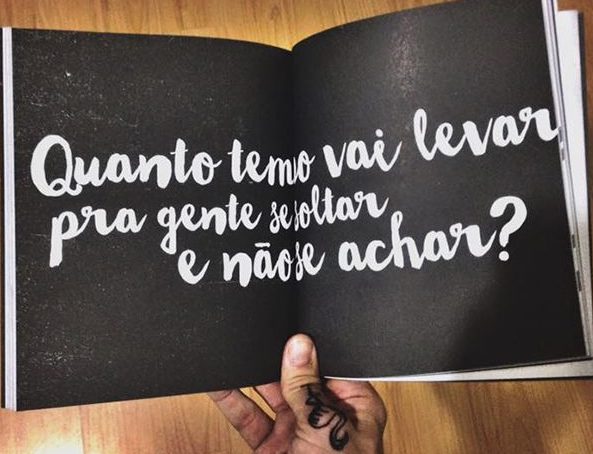 Quanto tempo vai levar
pra gente se soltar
e não se achar?